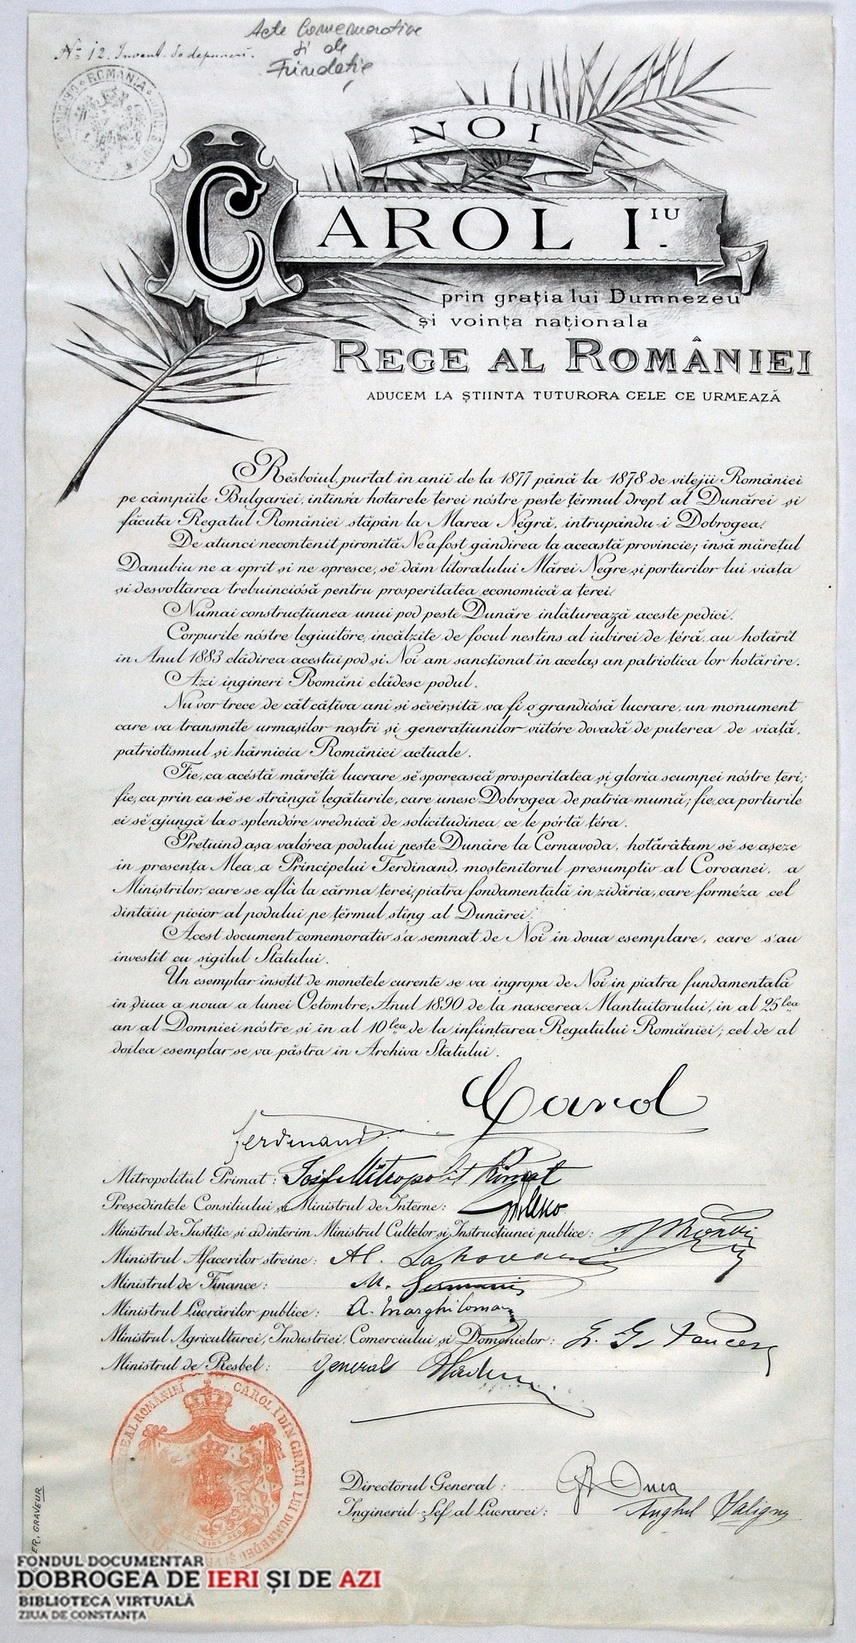 Acte Comemorative
și de
Fundație
No 12. Invent. de depuneri.
NOI
CAROL I.IU
prin grația lui Dumnezeu
și voința naționala
REGE AL ROMÂNIEI
ADUCEM LA ȘTIINTA TUTURORA CELE CE URMEAZĂ
Resboiul, purtat în anii de la 1877 până la 1878 de vitejii României
pe câmpiile Bulgariei, intinsa hotarele țerei nóstre peste țĕrmul drept al Dunărei și
făcuta Regatul României stăpân la Marea Negră, intrupându-i Dobrogea.
De atunci necontenit pironită Ne a fost gândirea la această provincie; însă mărețul
Danubiu ne a oprit și ne opresce, sĕ dăm litoralului Mărei Negre și porturilor lui viața
și desvoltarea trebuinciósă pentru prosperitatea economică a țerei.
Numai construcțiunea unui pod peste Dunăre inlăturează aceste pedici.
Corpurile nóstre legiuitóre, incălzite de focul nestins al iubirei de țéră, au hotărît
în Anul 1883 clădirea acestui pod și Noi am sancționat în acelaș an patriotica lor hotărîre.
Azi ingineri Români clădesc podul.
Nu vor trece de cât câțiva ani și sĕversită va fi o grandiósă lucrare, un monument
care va transmite urmașilor noștri și generațiunilor viitóre dovadă de puterea de viață,
patriotismul și hărnicia României actuale.
Fie, ca acéstă măréță lucrare sĕ sporească prosperitatea și gloria scumpei nóstre țeri;
fie, ca prin ea sĕ se strângă legăturile, care unesc Dobrogea de patria mumă; fie, ca porturile
ei sĕ ajungă la o splendóre vrednică de solicitudinea, ce le pórtă țéra.
Prețuind așa valórea podului peste Dunăre la Cernavoda, hotărâtam sĕ se așeze
in presența Mea, a Principelui Ferdinand, moștenitorul presumptiv al Coroanei, a
Miniștrilor, care se află la cârma țerei, piatra fondamentală în zidăria, care forméza cel
dintâiu picior al podului pe țĕrmul sting al Dunărei.
Acest document comemorativ s'a semnat de Noi în doua esemplare, care s'au
investit cu sigilul Statului.
Un esemplar insoțit de monetele curente se va ingropa de Noi in piatra fundamentală
în ḑiua a noua a lunei Octombre, Anul 1890 de la nascerea Mantuitorului, in al 25lea
an al Domniei nóstre și în al 10lea de la infiintarea Regatului României; cel de al
doilea esemplar se va păstra în Archiva Statului.
Carol
Ferdinand
Mitropolitul Primat: Iosif Mitropolit Primat
Preșcdintele Consiliului și Ministrul de Interne:
Ministrul de Iustiție și ad interim Ministrul Cultelor și Instrucțiunei publice:
Ministrul Afacerilor streine: Al. Lahovari
Ministrul de Finance: M. Germani
Ministrul Lucrărilor publice: A. Marghiloman
Ministrul Agriculturei, Industriei, Comerciului și Domenielor:
Ministrul de Resbel: General
Directorul General: G. Duca
Inginerul Șef al Lucrarei: Anghel Saligny
CAROL I DIN GRAȚIA LUI DUMNEZEU
REGE AL ROMÂNIEI
GRAVEUR
FONDUL DOCUMENTAR
DOBROGEA DE IERI ȘI DE AZI
BIBLIOTECA VIRTUALĂ
ZIUA DE CONSTANȚA